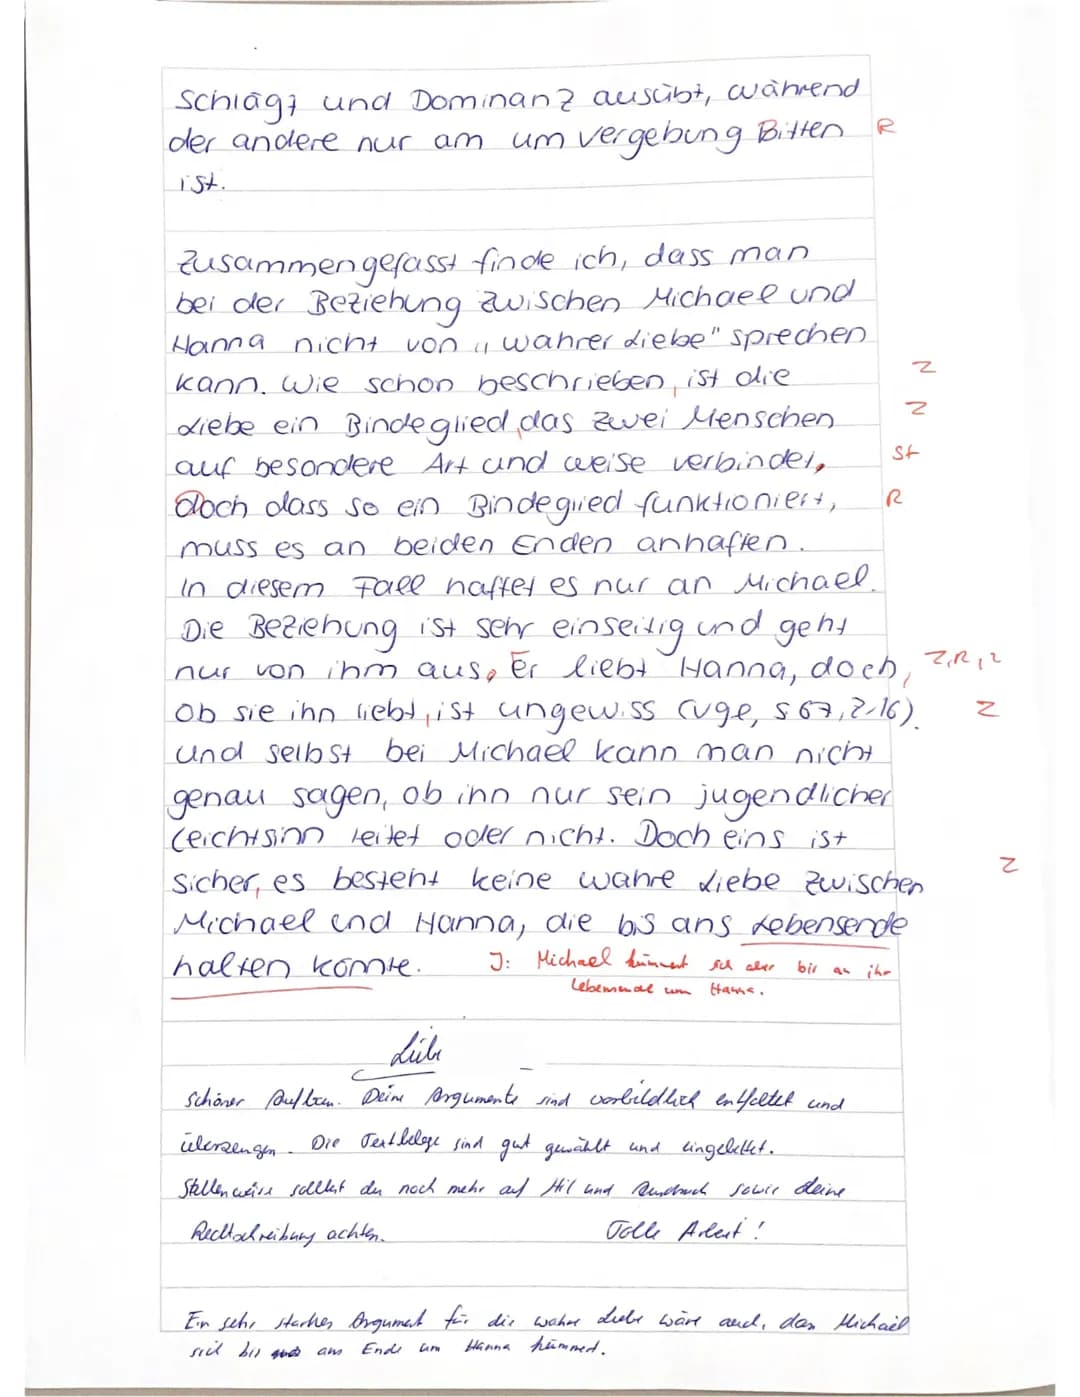 schlägt und Dominanz ausübt, während
der andere nur am um vergebung Bitten R
ist.
Zusammengefasst finde ich, dass man
bei der Beziehung zwischen Michael und
Hanna nicht von „wahrer Liebe" sprechen
kann. Wie schon beschrieben, ist die Z
Liebe ein Bindeglied, das zwei Menschen Z
auf besondere Art und weise verbindet, St
doch dass so ein Bindeglied funktioniert, R
muss es an beiden Enden anhaften.
In diesem Fall haftet es nur an Michael.
Die Beziehung ist sehr einseitig und geht
nur von ihm aus. Er liebt Hanna, doch, Z, R, Z
ob sie ihn liebt, ist ungewiss (vge, S 67, Z-16). Z
und selbst bei Michael kann man nicht
genau sagen, ob ihn nur sein jugendlicher
Leichtsinn leitet oder nicht. Doch eins ist
sicher, es besteht keine wahre Liebe zwischen Z
Michael und Hanna, die bis ans Lebensende
halten könnte. J: Michael kümmert sich aber bis an ihr
Lebensende um Hanna.
Schöner Aufbau. Deine Argumente sind vorbildlich entfaltet und
überzeugen. Die Textbelege sind gut gewählt und eingebettet.
Stellenweise solltest du noch mehr auf Stil und Ausdruck sowie deine
Rechtschreibung achten. Tolle Arbeit!
Ein sehr starkes Argument für die wahre Liebe wäre auch, dass Michael
sich bis ans Ende um Hanna kümmert.